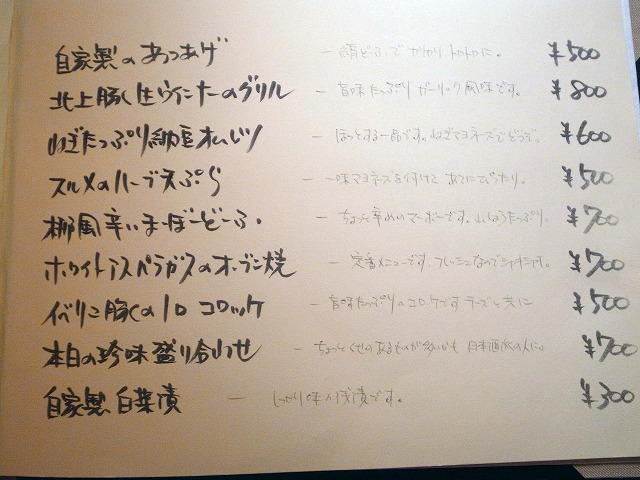 自家製のあつあげ ー 絹どーふ で カリカリ トロトロに。 ¥500
北上豚と生ウインナーのグリル ー 旨味たっぷり ガーリック風味です。 ¥800
ねぎたっぷり納豆オムレツ ー ほっとする一品です。ねぎマヨネーズでどうぞ。 ¥600
スルメのハーブ天ぷら ー 一味マヨネーズを付けて あてにぴったり。 ¥500
風辛いまーぼーどーふ。 ー ちょっと辛めのマーボーです。山しょうたっぷり。 ¥700
ホワイトアスパラガスのオーブン焼 ー 定番メニューです。フレッシュなのでシャキシャキ。 ¥700
イベリコ豚の コロッケ ー 旨味たっぷりのコロッケです チーズと共に ¥500
本日の珍味盛り合わせ ー ちょっとくせのあるものが多いかも 日本酒派の人に。 ¥700
自家製 白菜漬 ー しっかり味の浅漬です。 ¥300